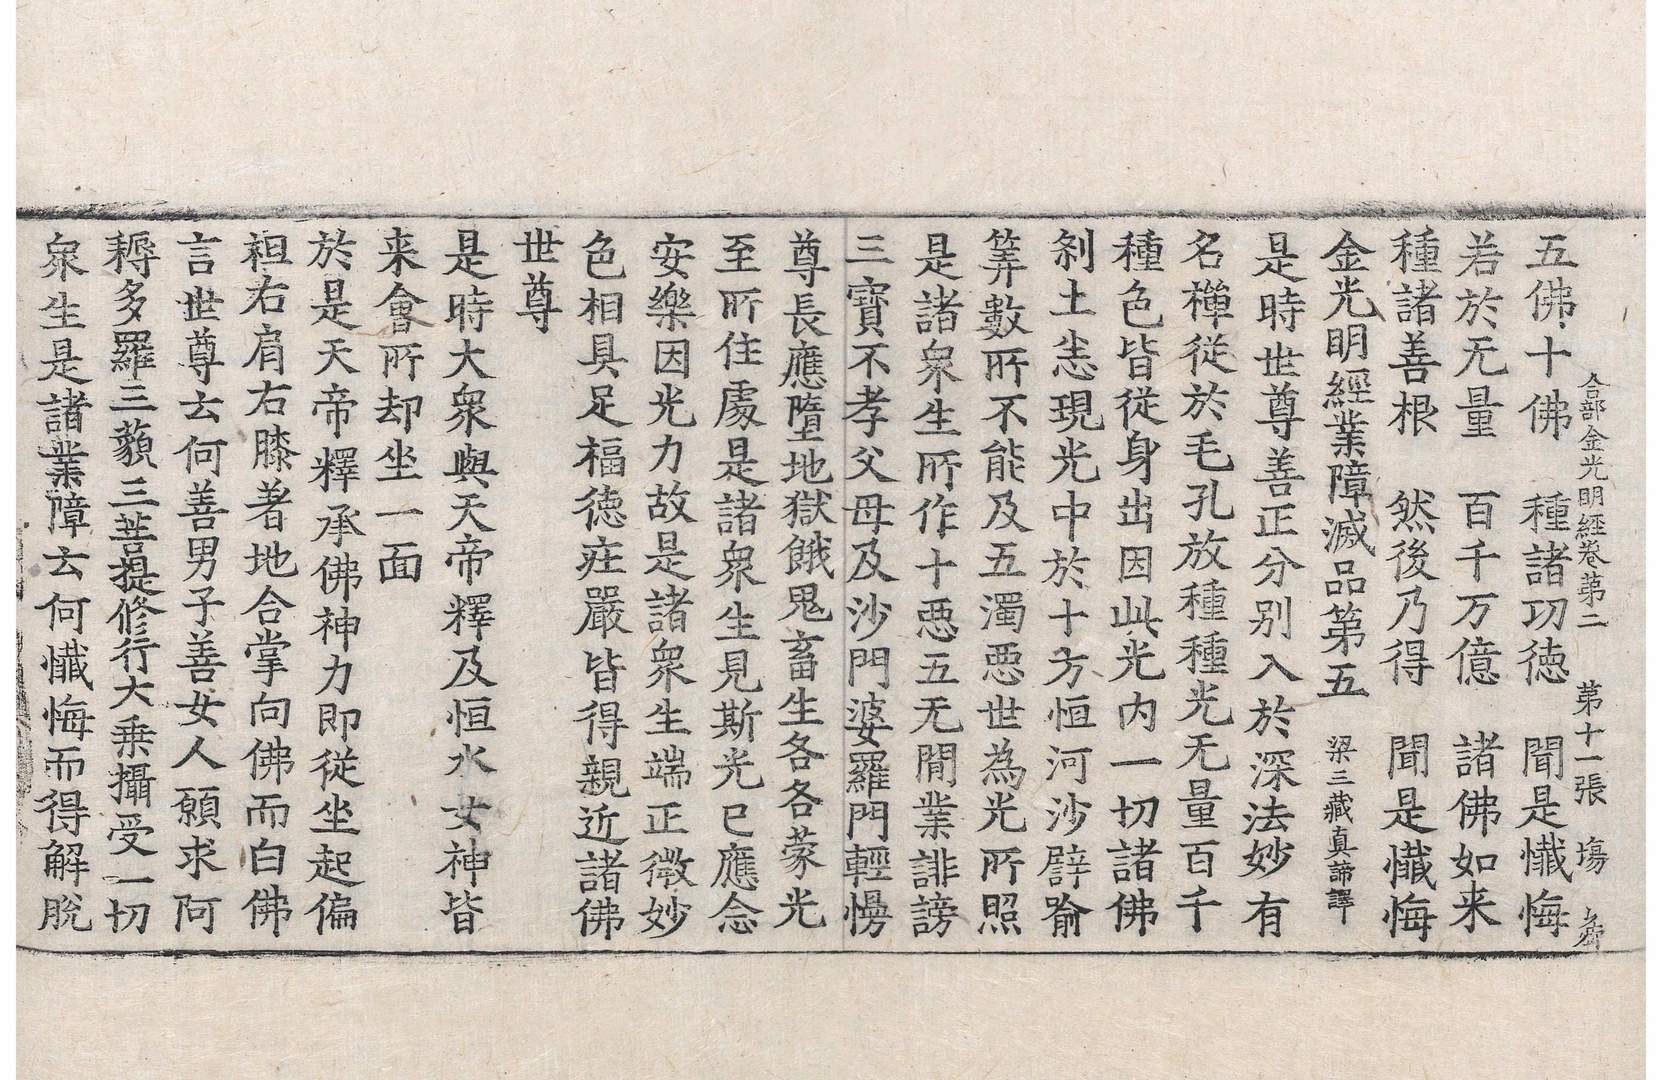 合部金光明經卷苐二 第十一張 塲
五佛十佛 種諸功徳 聞是懺悔
若於无量 百千万億 諸佛如来
種諸善根 然後乃得 聞是懺悔
金光明經業障滅品第五 梁三藏真諦譯
是時世尊善正分别入於深法妙有
名禪從於毛孔放種種光无量百千
種色皆從身出因此光内一切諸佛
刹土悉現光中於十方恒河沙譬喻
筭數所不能及五濁惡世為光所照
是諸衆生所作十惡五无間業誹謗
三寳不孝父母及沙門婆羅門輕慢
尊長應墮地獄餓鬼畜生各各蒙光
至所住處是諸衆生見斯光已應念
安樂因光力故是諸衆生端正微妙
色相具足福德莊嚴皆得親近諸佛
世尊
是時大衆與天帝釋及恒水女神皆
来會所却坐一面
於是天帝釋承佛神力即從坐起偏
袒右肩右膝著地合掌向佛而白佛
言世尊云何善男子善女人願求阿
耨多羅三藐三菩提修行大乗攝受一切
衆生是諸業障云何懺悔而得解脫